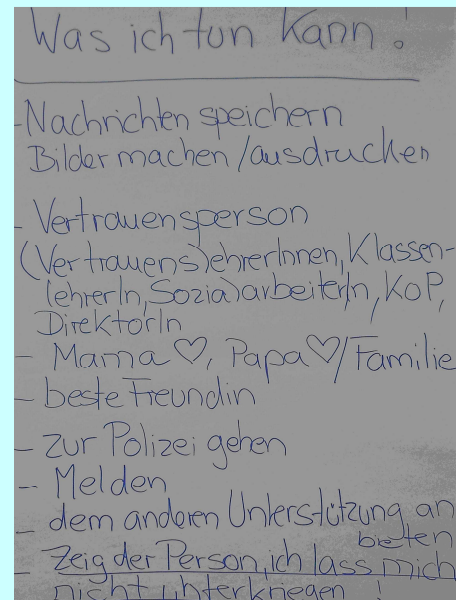 Was ich tun kann!
- Nachrichten speichern
Bilder machen/ausdrucken
- Vertrauensperson
(Vertrauens)lehrerInnen, Klassen-
lehrerIn, Sozialarbeiter/In, KoP,
DirektorIn
- Mama ♡, Papa ♡/Familie
- beste Freundin
- zur Polizei gehen
- Melden
- dem anderen Unterstützung an
bieten
- Zeig der Person, ich lass mich
nicht unterkriegen !